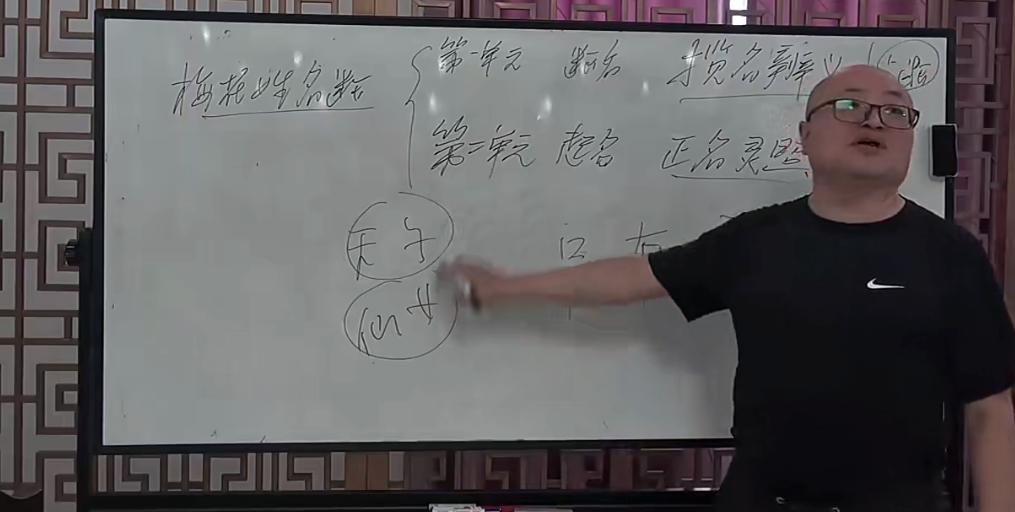 梅花姓名断
第一单元 断名 揽名辨义
第二单元 起名 正名灵
天子
仙女
江 右